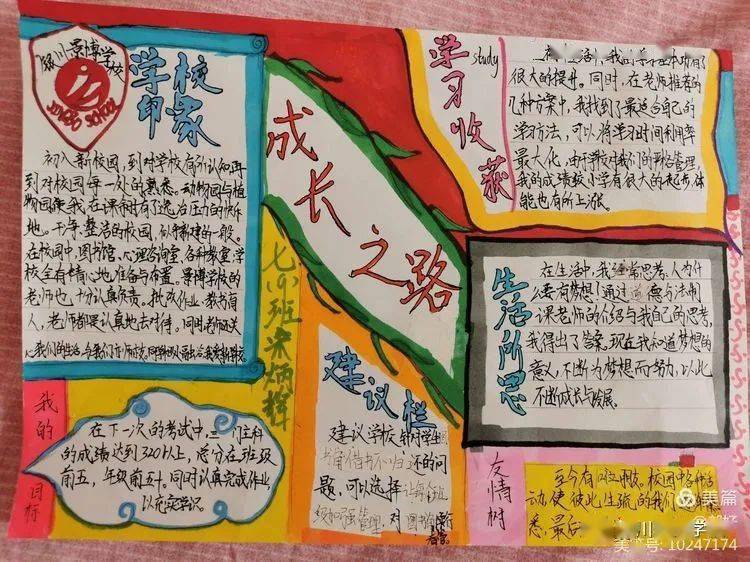 银川景博学校
JINGBO SCHOOL
学校
印象
初入新校园,到对学校有所认知再
到对校园每一处的熟悉。动物园与植
物园使我在课余时有了逃离压力的休作
地。干净、整洁的校园,似新建的一般。
在校园中,图书馆、心理咨询室、各种教室,学
校全有精心地准备与布置。景博学校的
老师也十分认真负责。批改作业,教书育
人,老师都是认真地去对待。同时,老师还关
心我们的生活,
成长之路
七(9)班
学习收获
study
很大的提升。同时,在老师推荐的
几种方案中,我找到了最适合自己的
学习方法,可以将学习时间利用率
最大化。由于学校中我们的严格管理,
我的成绩较小学有很大的起步,体
能也有所上涨。
生活所思
在生活中,我经常思考,人为什
么要有梦想!通过道德与法制
课老师的介绍与我自己的思考,
我得出了答案。现在我知道梦想的
意义,不断为梦想而努力,以此
不断成长与发展。
建议栏
建议学校针对学生
书角借书不归还的问
题,可以选择让每个班
级加强管理,对图书角
我的目标
在下一次的考试中,三门主科
的成绩达到320以上,总分在班级
前五,年级前五十。同时认真完成作业
以充实学识。
友情树
至今有
动,使彼此生疏的我们
悉,最后
美篇
美篇号:10247174